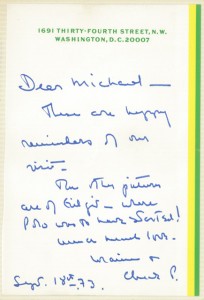 1691 THIRTY-FOURTH STREET, N.W.
WASHINGTON, D.C. 20007
Dear Michael —
These are happy
reminders of our
visit —
The pictures
are of Gilgit — where
Polo was to have started!
much love
&
Sept. 18th 73.